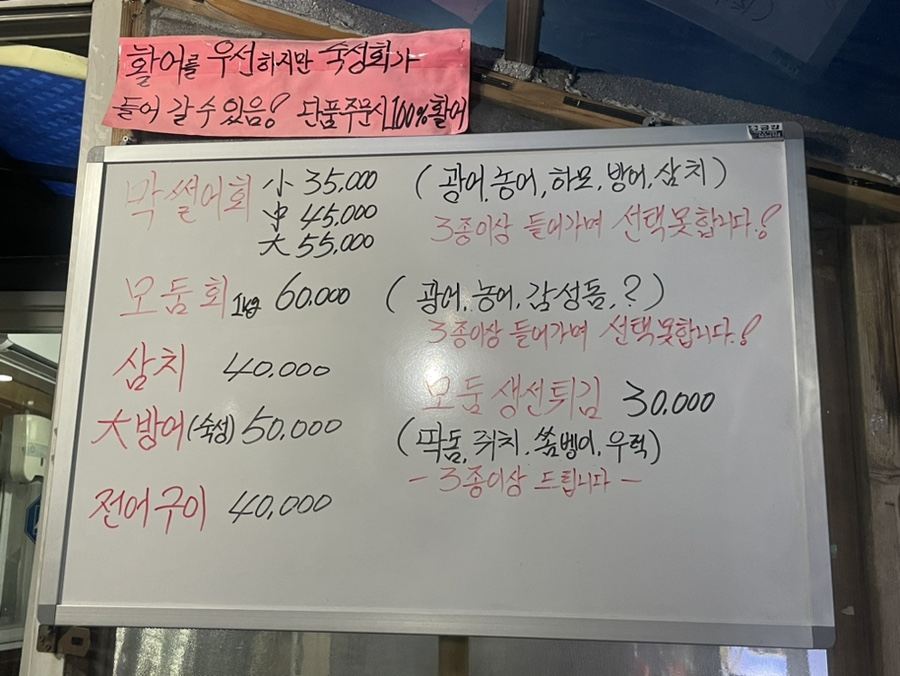 활어를 우선하지만 숙성회가
들어 갈 수 있음! 단품주문시 100% 활어
막썰어회 小 35,000 (광어, 농어, 하모, 방어, 삼치)
中 45,000 3종이상 들어가며 선택못합니다!
大 55,000
모둠회 1kg 60,000 (광어, 농어, 감성돔, ?)
3종이상 들어가며 선택못합니다!
삼치 40,000
모둠 생선튀김 30,000
大방어(숙성) 50,000 (딱돔, 쥐치, 쏨벵이, 우럭)
- 3종이상 드립니다 -
전어구이 40,000